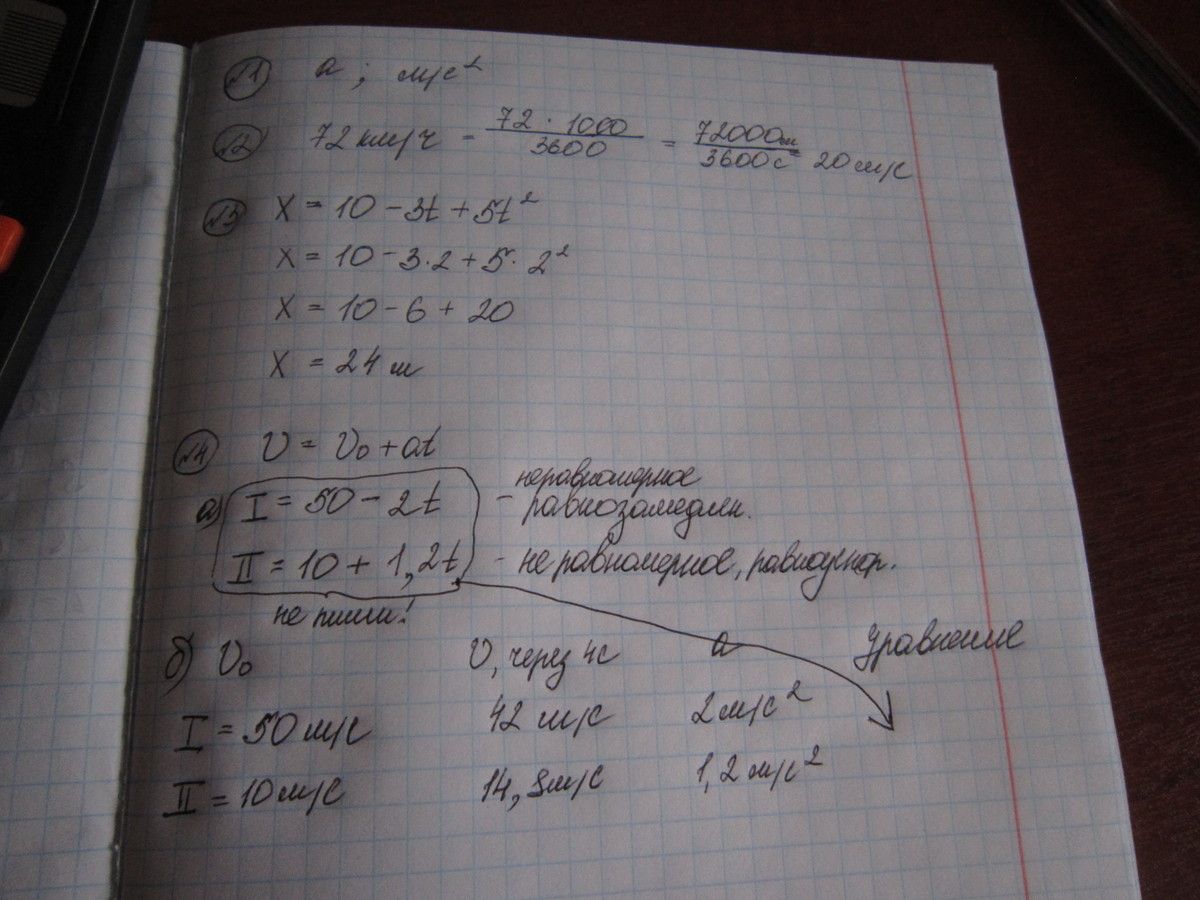 №1 a ; м/с²
№2 72 км/ч = 72 · 1000 / 3600 = 72000м / 3600с = 20 м/с
№3 X = 10 - 3t + 5t²
X = 10 - 3·2 + 5·2²
X = 10 - 6 + 20
X = 24 м
№4 υ = υ₀ + at
а) I = 50 - 2t - неравномерное равнозамедлен.
II = 10 + 1,2t - не равномерное, равноускор.
не пиши!
б) υ₀ υ, через 4с a Уравнение
I = 50 м/с 42 м/с 2 м/с²
II = 10 м/с 14,8 м/с 1,2 м/с²